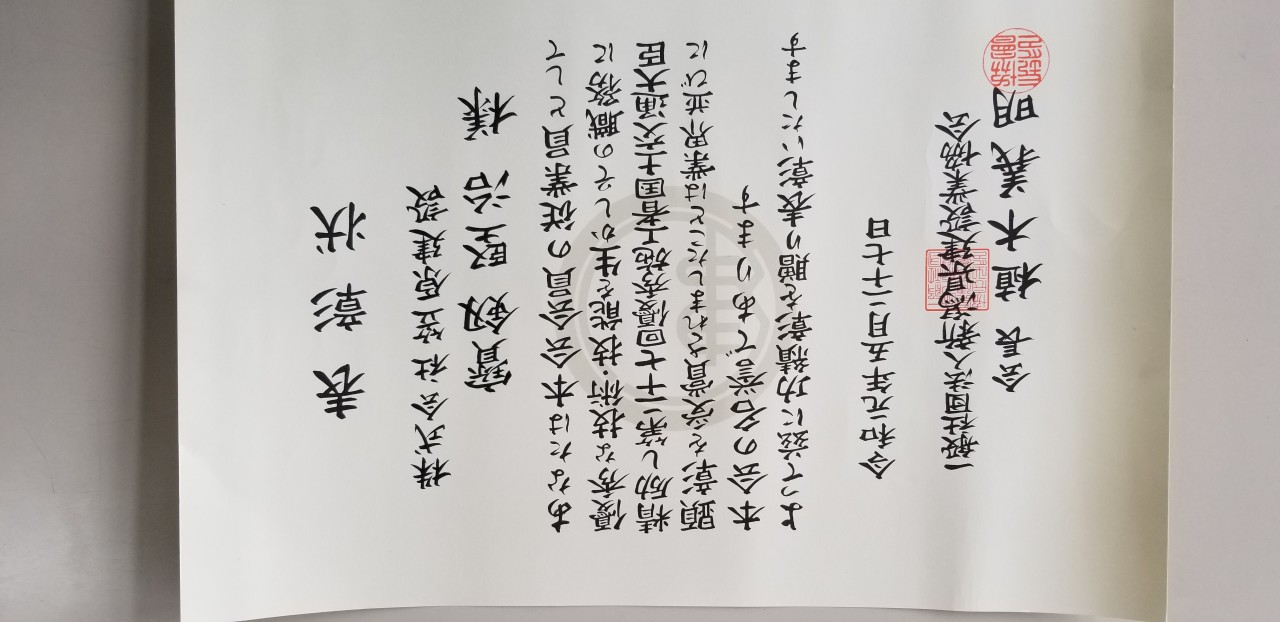 表彰状
株式会社笠原建設
寶釼堅治 様
あなたは本会会員の従業員として
優秀な技術・技能を生かしその職務に
精励し第二十七回優秀施工者国土交通大臣
顕彰を受賞されましたことは業界並びに
本会の名誉であります
よって茲に功績章を贈り表彰いたします
令和元年五月二十七日
一般社団法人新潟県建設業協会
会長 植木義明